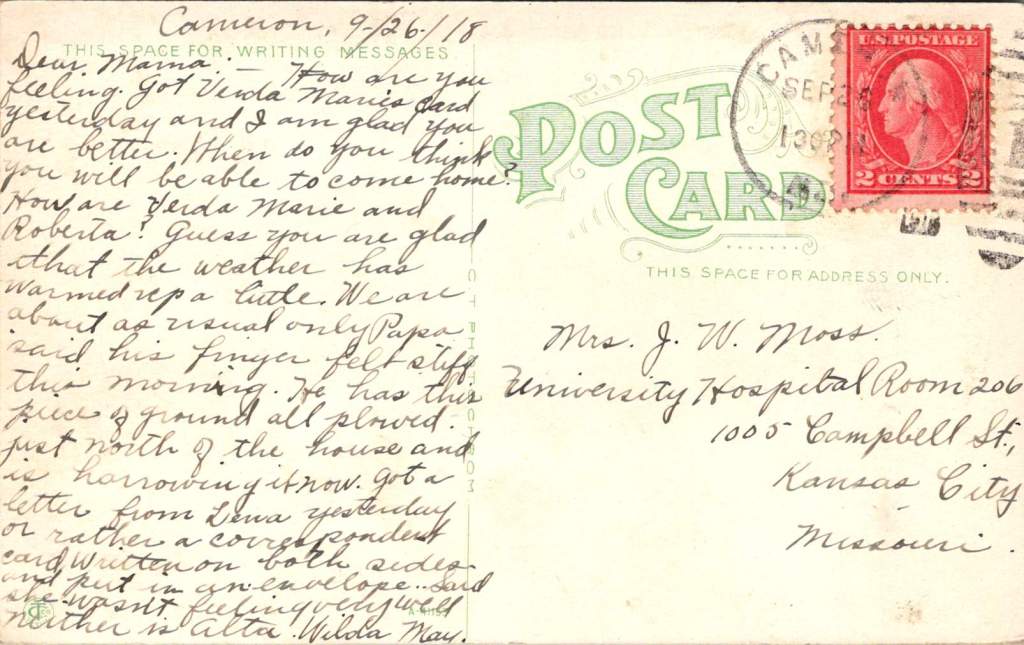 Cameron, 9/26/18
THIS SPACE FOR WRITING MESSAGES
Dear Mama:- How are you
feeling. Got Verda Marie's card
yesterday and I am glad you
are better. When do you think
you will be able to come home?
How are Verda Marie and
Roberta? Guess you are glad
that the weather has
warmed up a little. We are
about as usual only Papa
said his finger felt stiff
this morning. He has this
piece of ground all plowed
just north of the house and
is harrowing it now. Got a
letter from Lena yesterday
or rather a correspondent
card, written on both sides
and put in an envelope. Said
she wasn't feeling very well
neither is Alta. Wilda May.
POST
CARD
THIS SPACE FOR ADDRESS ONLY.
Mrs. J. W. Moss.
University Hospital Room 206
1005 Campbell St.,
Kansas City
Missouri.
SEP
130P
1918
U.S. POSTAGE
2 CENTS 2